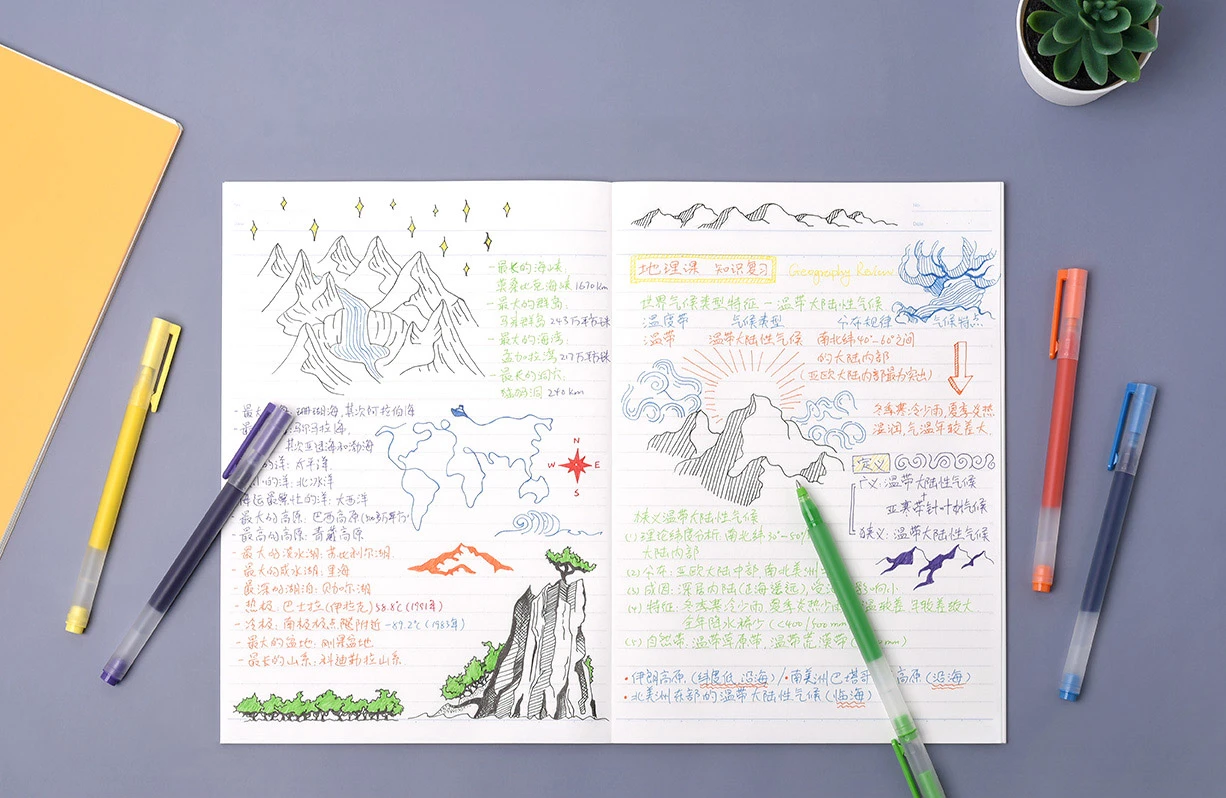 -最长的海峡:
莫桑比克海峡 1670km
-最大的群岛:
马来群岛 243万平方km
-最大的海湾:
孟加拉湾 217万平方km
-最长的洞穴:
猛犸洞 240km
-最大 珊瑚海,其次阿拉伯海
-最 马尔马拉海,
其次亚速海和渤海
的洋:太平洋
小的洋:北冰洋
海运最繁忙的洋:大西洋
-最大的高原:巴西高原
-最高的高原:青藏高原
-最大的淡水湖:苏比利尔湖
-最大的咸水湖:里海
-最深的湖泊:贝加尔湖
-热极:巴士拉(伊拉克)58.8℃(1921年)
-冷极:南极极点附近-89.2℃(1983年)
-最大的盆地:刚果盆地
-最长的山系:科迪勒拉山系
N
W E
S
No.
Date
地理课 知识复习 Geography Review
世界气候类型特征-温带大陆性气候
温度带 气候类型 分布规律 气候特点
温带 温带大陆性气候 南北纬40°-60°之间
的大陆内部
(亚欧大陆内部最为突出)
冬季寒冷少雨,夏季炎热
湿润,气温年较差大
定义
广义:温带大陆性气候
+
亚寒带针叶林气候
狭义:温带大陆性气候
狭义温带大陆性气候
(1)理论纬度分析:南北纬30°-50°
大陆内部
(2)分布:亚欧大陆中部,南北美洲
(3)成因:深居内陆(距海遥远),受 影响小
(4)特征:冬季寒冷少雨 夏季炎热少雨 温较差 年较差较大
全年降水稀少(<400/500mm
(5)自然带:温带草原带,温带荒漠带( mm)
•伊朗高原(纬度低,沿海)/•南美洲巴塔哥 高原(沿海)
•北美洲 部的温带大陆性气候(临海)